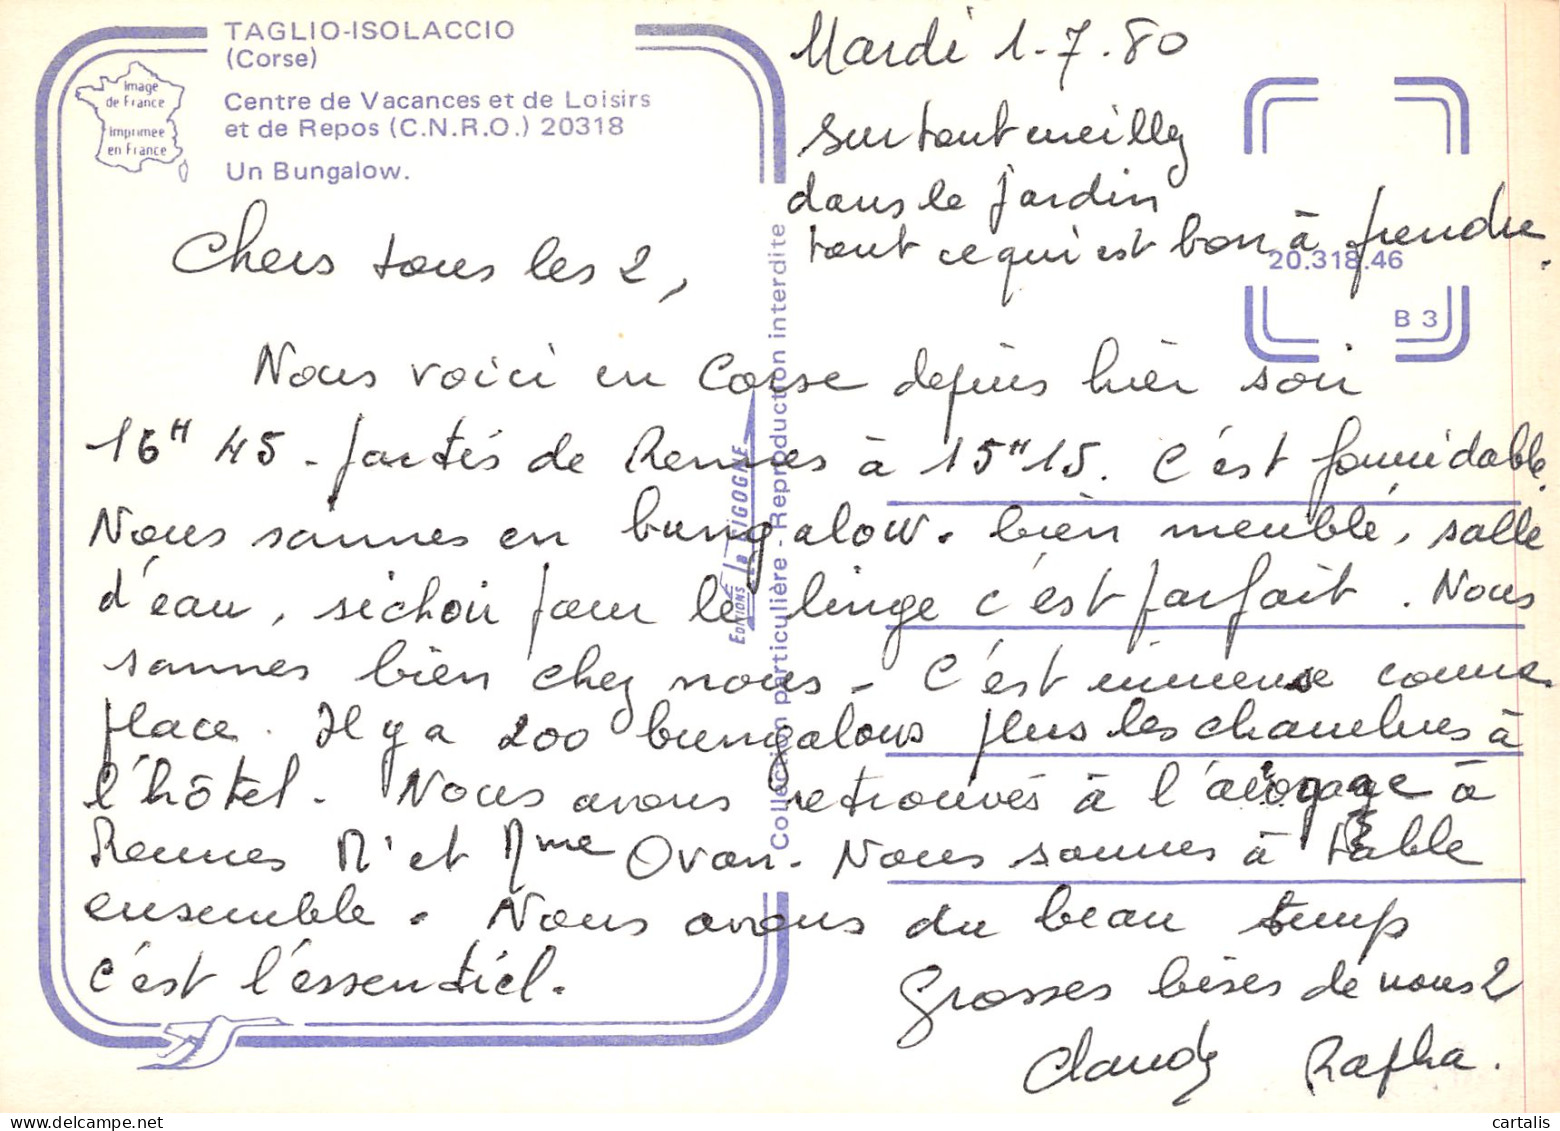 TAGLIO-ISOLACCIO
(Corse)
Image
de France
Imprimée
en France
Centre de Vacances et de Loisirs
et de Repos (C.N.R.O.) 20318
Un Bungalow.
Mardi 1.7.80
Surtout cueilly
dans le jardin
tout ce qui est bon à prendre.
20.318.46
B 3
Chers tous les 2,
Nous voici en Corse depuis hier soir
16H 45 - partis de Rennes à 15H15. C'est formidable.
Nous sommes en bungalow. bien meublé, salle
d'eau, sèchoir pour le linge c'est parfait. Nous
sommes bien chez nous - C'est immense comme
place. Il y a 200 bungalows plus les chambres à
l'hôtel. Nous avons retrouvés à l'à
Rennes Mr et Mme Ovan. Nous sommes à table
ensemble. Nous avons du beau temps
c'est l'essentiel.
Grosses bises de nous 2
Claudy Rapha.
EDITIONS LA CIGOGNE
Collection particulière - Reproduction interdite
cartalis